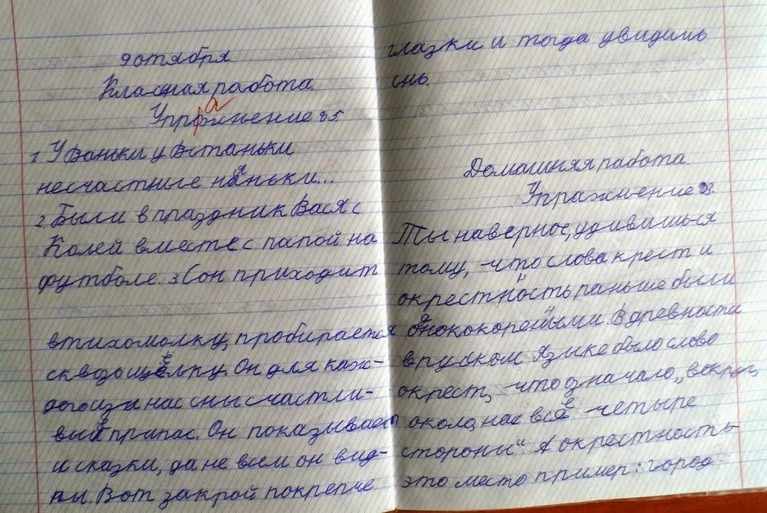 9 отября
Класная работа.
Упражнение 85.
1. У Ваньки у Встаньки
несчастные няньки...
2. Были в праздник Вася с
Колей вместе с папой на
футболе. 3. Сон приходит
втихомолку, пробирается
сквозь щёлку. Он для каж-
дого из нас сны счастли-
вый припас. Он показывает
и сказки, да не всем он вид-
ны. Вот закрой покрепче
глазки и тогда увидишь
сны.
Домашняя работа
Упражнение
Ты наверное, удивишься
тому, что слова крест и
окрестность раньше были
однокореными. В древности
в руском языке было слово
окрест, что означало „вокруг,
около, на все четыре
стороны". А окрестность
это место пример: город